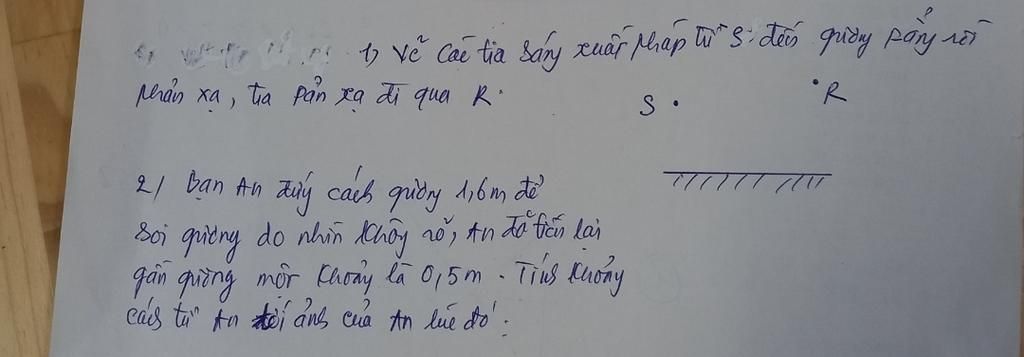 1) Vẽ các tia sáng xuất pháp từ S đến gương pẳng rồi
phản xạ, tia pản xạ đi qua R.
S
R
2) Bạn An đứng cách gương 1,6m để
soi gương do nhìn không rõ, An đã tiến lại
gần gương một khoảng là 0,5m. Tính khoảng
cách từ An tới ảnh của An lúc đó.